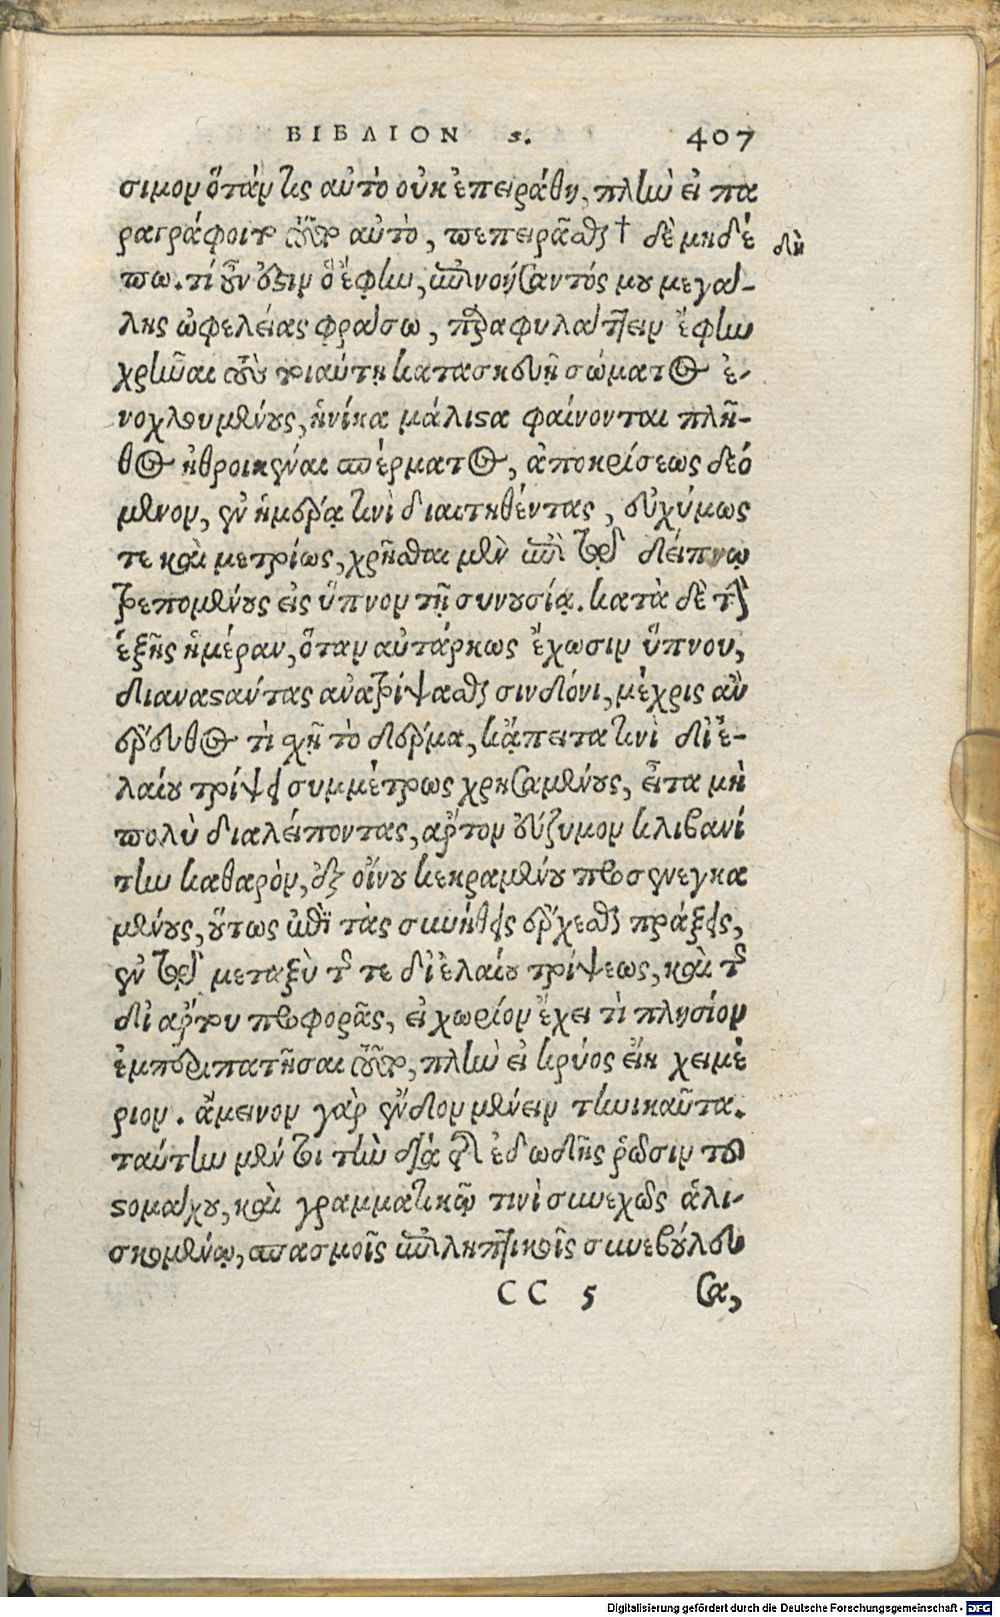 ΒΙΒΛΙΟΝ ϛ. 407
σιμον ὅταν τις αὐτὸ οὐκ ἐπειράθη, πλὴν εἰ πα
ραγράφοιτο τοῦτο αὐτὸ, πεπειρᾶσθαι † δὲ μηδέ
δὴ
πω. τί οὖν ἐστιν ὃ ἔφην, ἐπινοήσαντός μου μεγάλ-
λης ὠφελείας φράσω, παραφυλάττειν ἔφην
χρῆναι τοὺς τοιαύτῃ κατασκευῇ σώματος ἐ-
νοχλουμένους, ἡνίκα μάλιστα φαίνονται πλῆ-
θος ἠθροικέναι σπέρματος, ἀποκρίσεως δεό
μενον, ἐν ἡμέρᾳ τινὶ διαιτηθέντας, εὐχύμως
τε καὶ μετρίως, χρῆσθαι μὲν ἐπὶ τῷ δείπνῳ
τρεπομένους εἰς ὕπνον τῇ συνουσίᾳ. κατὰ δὲ τὴν
ἑξῆς ἡμέραν, ὅταν αὐτάρκως ἔχωσιν ὕπνου,
διαναστάντας ἀνατρίψασθαι σινδόνι, μέχρις ἂν
ἔρευθός τι σχῇ τὸ δέρμα, κᾄπειτα τινὶ δι' ἐ-
λαίου τρίψει συμμέτρως χρησαμένους, εἶτα μὴ
πολὺ διαλείποντας, ἄρτον εὔζυμον κλιβανί
την καθαρὸν, ἐξ οἴνου κεκραμένου προσενεγκα
μένους, οὕτως ἐπὶ τὰς συνήθεις ἔρχεσθαι πράξεις,
ἐν τῷ μεταξὺ τῆς τε δι' ἐλαίου τρίψεως, καὶ τῆς
δι' ἄρτου προσφορᾶς, εἰ χωρίον ἔχει τι πλησίον
ἐμπεριπατῆσαι τοῦτο, πλὴν εἰ κρύος εἴη χειμέ
ριον. ἄμεινον γὰρ ἔνδον μένειν τηνικαῦτα.
ταύτην μέν τοι τὴν διὰ τῆς ἐδωδῆς ῥῶσιν τοῦ
στομάχου, καὶ γραμματικῷ τινὶ συνεχῶς ἁλι-
σκομένῳ, σπασμοῖς ἐπιληπτικοῖς συνεβούλευ
CC 5 σα,